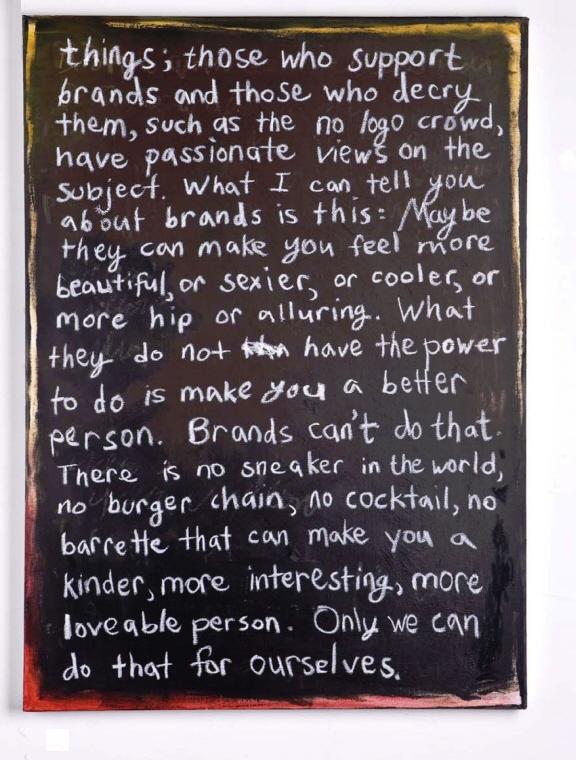 things; those who support
brands and those who decry
them, such as the no logo crowd,
have passionate views on the
subject. What I can tell you
about brands is this: Maybe
they can make you feel more
beautiful, or sexier, or cooler, or
more hip or alluring. What
they do not have the power
to do is make you a better
person. Brands can't do that.
There is no sneaker in the world,
no burger chain, no cocktail, no
barrette that can make you a
kinder, more interesting, more
loveable person. Only we can
do that for ourselves.